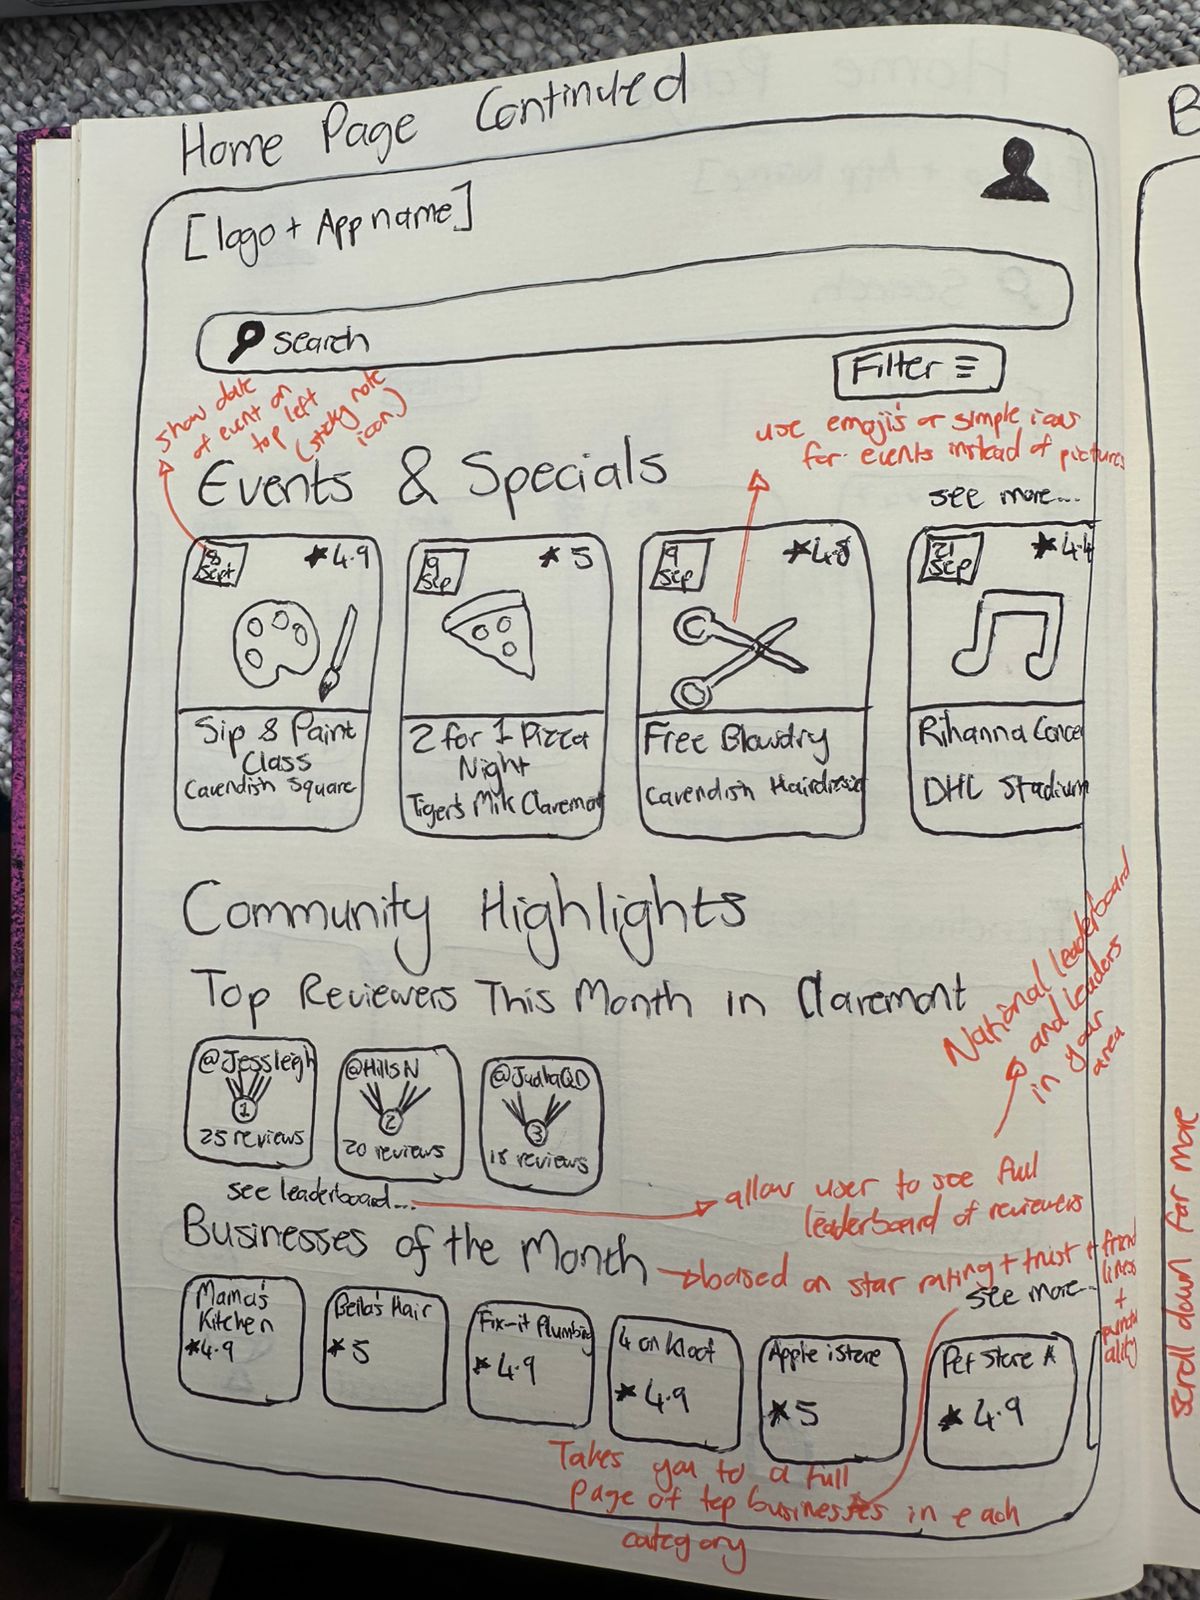 Home Page Continued
B
[logo + App name]
search
Filter
show date
of event on
top left
(sticky note
icon)
use emoji's or simple icons
for events instead of pictures
Events & Specials
see more...
8
Sept
★4.9
9
Sep
★5
9
Sep
★4.8
21
Sep
★4.4
Sip & Paint
Class
Cavendish Square
2 for 1 Pizza
Night
Tiger's Milk Claremont
Free Blowdry
Cavendish Hairdresse
Rihanna Conce
DHL Stadium
Community Highlights
Top Reviewers This Month in Claremont
National leaderboard
and leaders
in your
area
@Jessleigh
1
25 reviews
@HillsN
2
20 reviews
@JudhaQD
3
18 reviews
see leaderboard...
allow user to see full
leaderboard of reviewers
Businesses of the Month
based on star rating + trust + friend
liness
+
punctu
ality
see more...
Mama's
Kitchen
★4.9
Bella's Hair
★5
Fix-it Plumbing
★4.9
4 on Kloof
★4.9
Apple iStore
★5
Pet Store A
★4.9
Takes you to a full
page of top businesses in each
category
scroll down for more